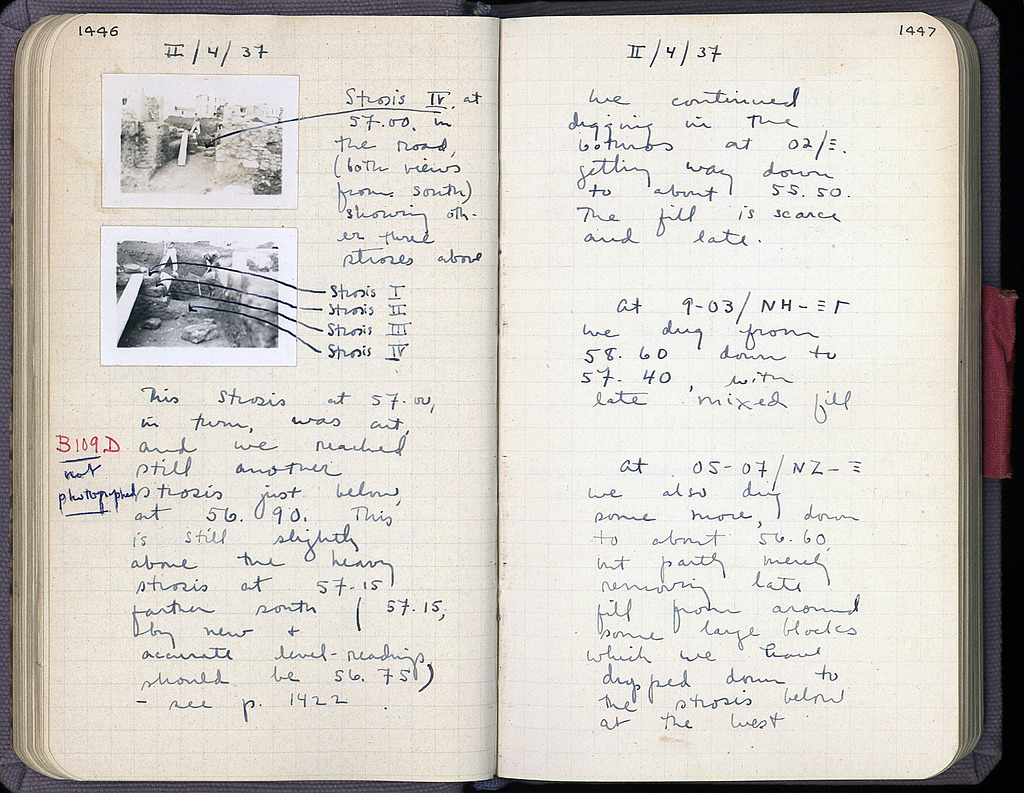 1446
II/4/37
Strosis IV, at
57.00, in
the road,
(both views
from south)
showing oth-
er three
stroses above
Strosis I
Strosis II
Strosis III
Strosis IV
This strosis at 57.00,
in turn, was cut,
and we reached
still another
strosis just below,
at 56.90. This
is still slightly
above the heavy
strosis at 57.15
farther south (57.15,
by new &
accurate level-readings,
should be 56.75)
- see p. 1422.
B109D
not
photographed
1447
II/4/37
We continued
digging in the
bothros at 02/Ξ.
getting way down
to about 55.50.
The fill is scarce
and late.
At 9-03/NH-ΞΓ
we dug from
58.60 down to
57.40, with
late mixed fill
At 05-07/NZ-Ξ
we also dug
some more, down
to about 56.60,
but partly merely
removing late
fill from around
some large blocks
which we have
dropped down to
the strosis below
at the west